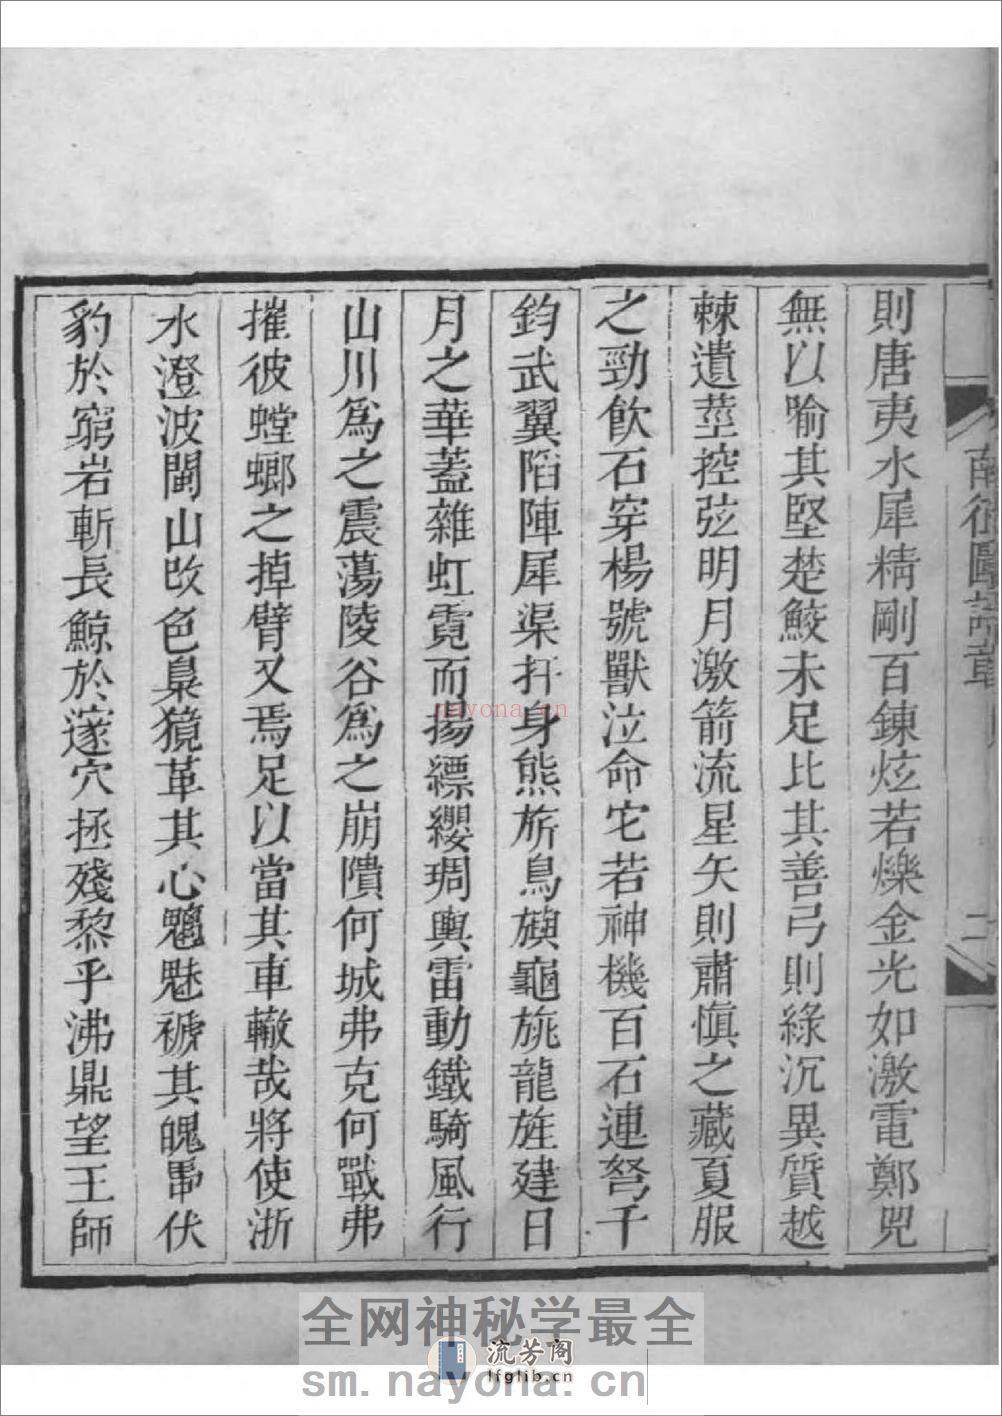 則唐夷水犀精剛百鍊炫若爍金光如激電鄭兕
無以喻其堅楚鮫未足比其善弓則綠沉異質越
棘遺莖控弦明月激箭流星矢則肅慎之藏夏服
之勁飲石穿楊號獸泣命它若神機百石連弩千
鈞武翼陷陣犀渠扞身熊旂鳥旟龜旐龍旌建日
月之華蓋雜虹霓而揚縹纓琱輿雷動鐵騎風行
山川為之震蕩陵谷為之崩隤何城弗克何戰弗
摧彼螳螂之掉臂又焉足以當其車轍哉將使浙
水澄波閩山改色梟獍革其心魑魅褫其魄馽伏
豹於窮岩斬長鯨於邃穴拯殘黎乎沸鼎望王師
二
nayona.cn
全网神秘学最全
流芳阁
lfglib.cn
sm.nayona.cn